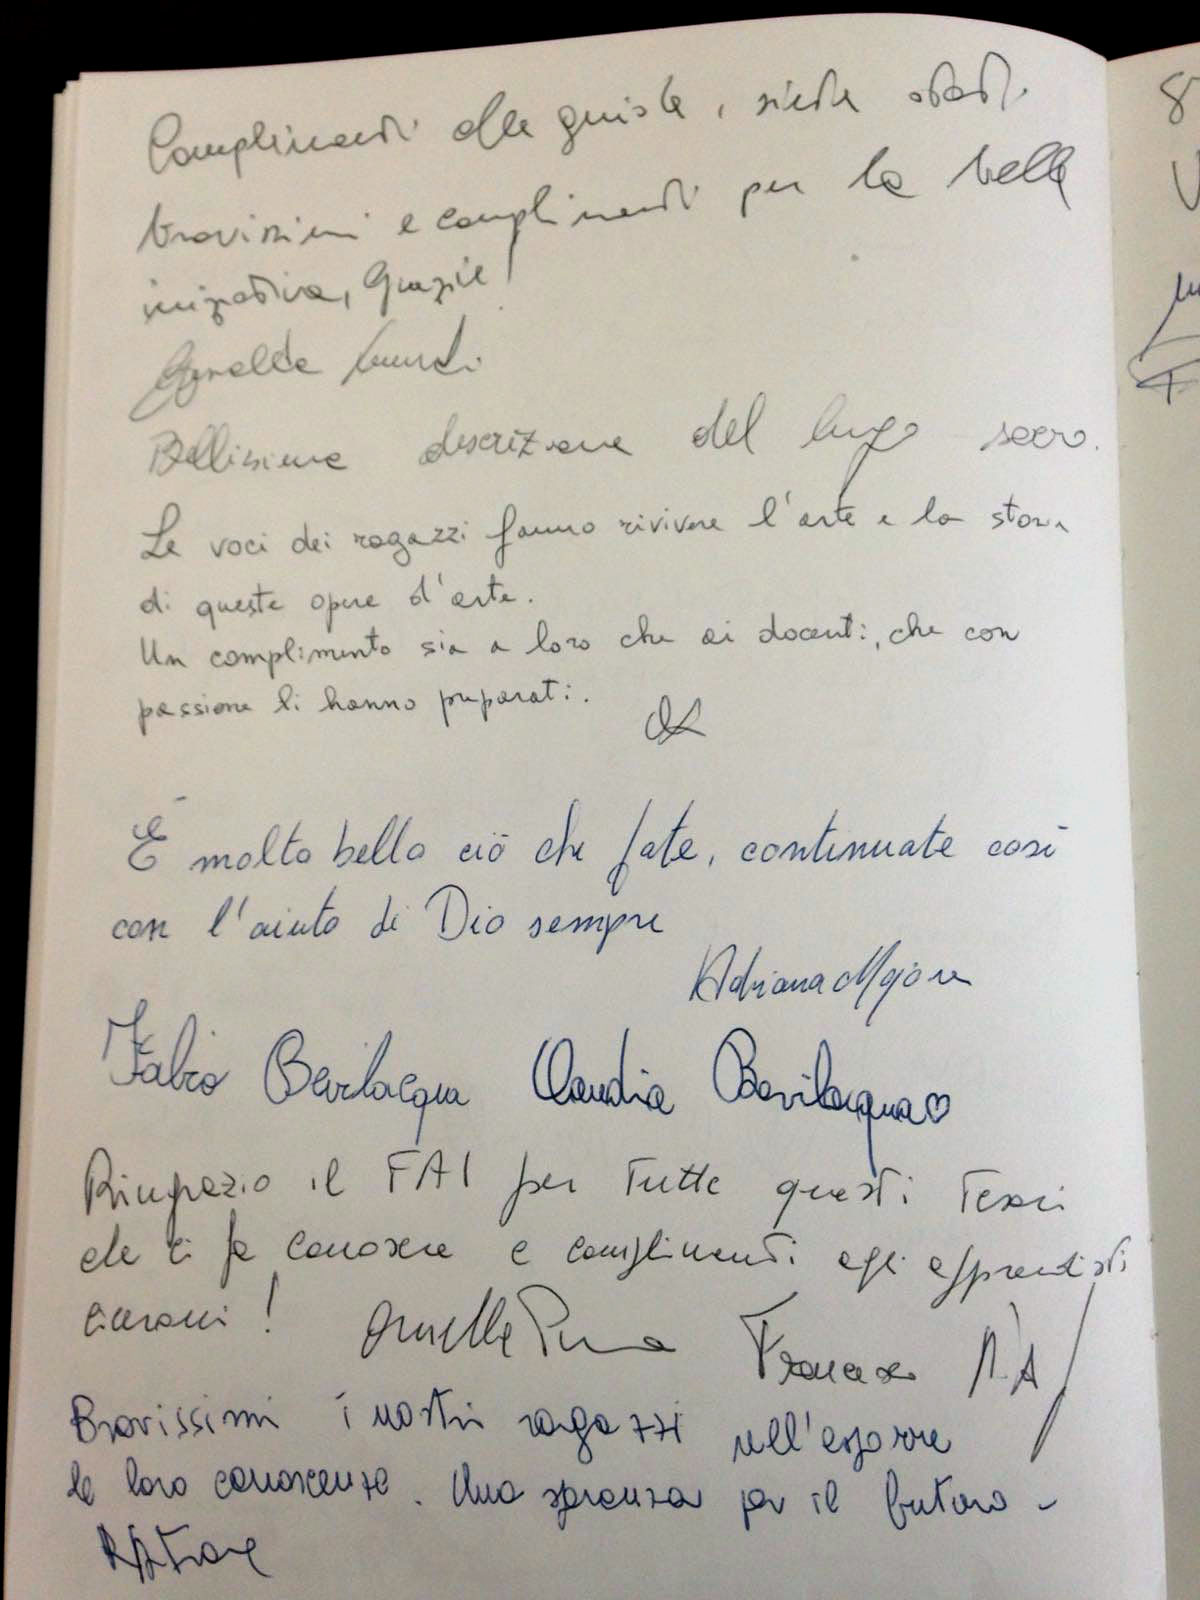 Complimenti alle guide, siete stati
bravissimi e complimenti per la bella
iniziativa, Grazie!
Bellissima descrizione del luogo sacro.
Le voci dei ragazzi fanno rivivere l'arte e la storia
di queste opere d'arte.
Un complimento sia a loro che ai docenti, che con
passione li hanno preparati.
È molto bello ciò che fate, continuate così
con l'aiuto di Dio sempre
Adriana
Fabio Bevilacqua Claudia Bevilacqua♡
Ringrazio il FAI per tutti questi tesori
che ci fa conoscere e complimenti agli apprendisti
ciceroni! Francesco
Bravissimi i nostri ragazzi nell'esporre
le loro conoscenze. Una speranza per il futuro -